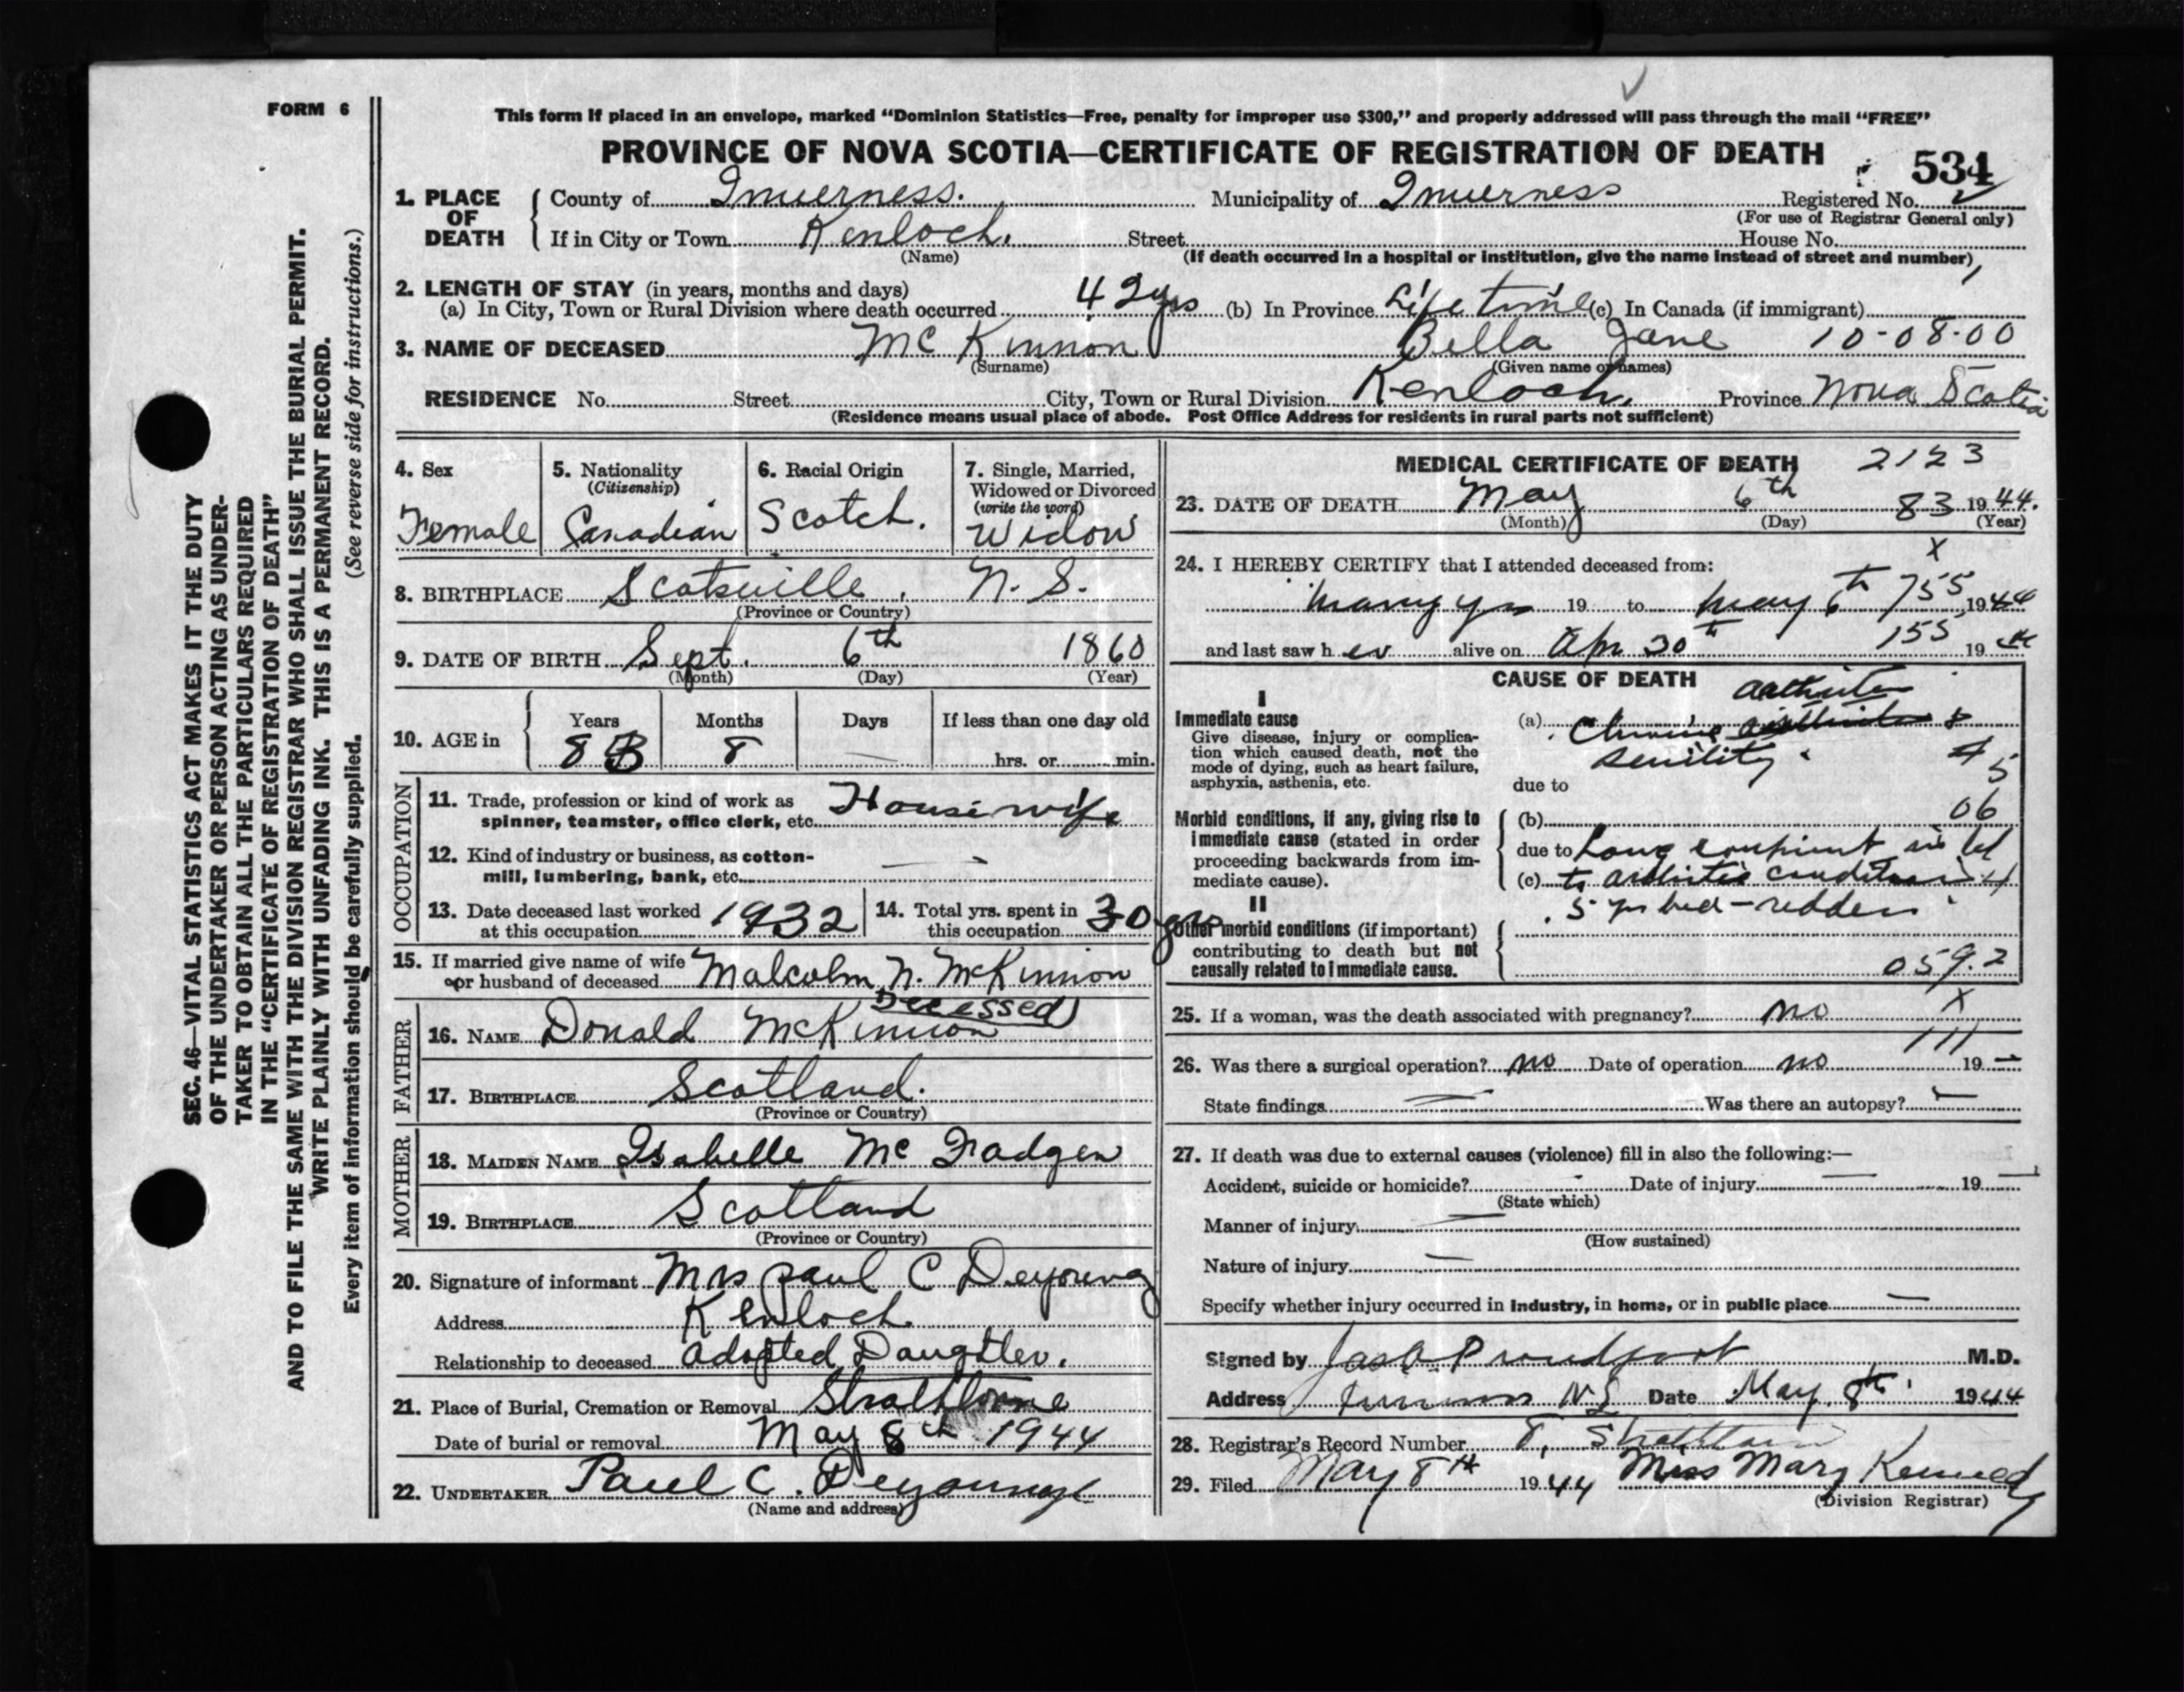 FORM 6
This form if placed in an envelope, marked “Dominion Statistics—Free, penalty for improper use $300,” and properly addressed will pass through the mail “FREE”
PROVINCE OF NOVA SCOTIA—CERTIFICATE OF REGISTRATION OF DEATH
534
1. PLACE OF DEATH
County of Inverness. Municipality of Inverness Registered No.
(For use of Registrar General only)
If in City or Town Kenloch. Street House No.
(Name)
(If death occurred in a hospital or institution, give the name instead of street and number)
2. LENGTH OF STAY (in years, months and days)
(a) In City, Town or Rural Division where death occurred 42 yrs (b) In Province Life time (c) In Canada (if immigrant)
3. NAME OF DECEASED Mc Kinnon Bella Jane 10-08-00
(Surname) (Given name or names)
RESIDENCE No. Street City, Town or Rural Division Kenloch. Province Nova Scotia
(Residence means usual place of abode. Post Office Address for residents in rural parts not sufficient)
4. Sex
Female
5. Nationality
(Citizenship)
Canadian
6. Racial Origin
Scotch.
7. Single, Married, Widowed or Divorced
(write the word)
Widow
8. BIRTHPLACE Scotsville. N. S.
(Province or Country)
9. DATE OF BIRTH Sept. 6th 1860
(Month) (Day) (Year)
10. AGE in
Years Months Days If less than one day old
83 8 — hrs. or min.
OCCUPATION
11. Trade, profession or kind of work as
spinner, teamster, office clerk, etc. Housewife
12. Kind of industry or business, as cotton-
mill, lumbering, bank, etc. —
13. Date deceased last worked
at this occupation 1932
14. Total yrs. spent in
this occupation 30 yrs
15. If married give name of wife
or husband of deceased Malcolm N. McKinnon
Decessed)
FATHER
16. NAME Donald McKinnon
17. BIRTHPLACE Scotland.
(Province or Country)
MOTHER
18. MAIDEN NAME Isabelle Mc Fadgen
19. BIRTHPLACE Scotland
(Province or Country)
20. Signature of informant Mrs Paul C Deyoung
Address Kenloch
Relationship to deceased adopted Daughter.
21. Place of Burial, Cremation or Removal Strathlorne
Date of burial or removal May 8th 1944
22. UNDERTAKER Paul C. Deyoung
(Name and address)
MEDICAL CERTIFICATE OF DEATH 2123
23. DATE OF DEATH May 6th 83 1944.
(Month) (Day) (Year)
24. I HEREBY CERTIFY that I attended deceased from: X
many yrs 19 to May 6th 755 1944
and last saw her alive on Apr 30th 155 19 44
CAUSE OF DEATH
I
Immediate cause
Give disease, injury or complica-
tion which caused death, not the
mode of dying, such as heart failure,
asphyxia, asthenia, etc.
arthritis
(a) Chronic &
senility
5
due to
Morbid conditions, if any, giving rise to
immediate cause (stated in order
proceeding backwards from im-
mediate cause).
(b) 06
due to Long in bed
(c) to arthritis condition
5 yrs bed-ridden
II
Other morbid conditions (if important)
contributing to death but not
causally related to immediate cause.
059.2
25. If a woman, was the death associated with pregnancy? no X
111
26. Was there a surgical operation? no Date of operation no 19 —
State findings — Was there an autopsy? —
27. If death was due to external causes (violence) fill in also the following:—
Accident, suicide or homicide? Date of injury 19
(State which)
Manner of injury —
(How sustained)
Nature of injury —
Specify whether injury occurred in industry, in home, or in public place —
Signed by Jas A Proudfoot M.D.
Address Inverness N.S Date May 8th 1944
28. Registrar's Record Number 8, Strathlorne
29. Filed May 8th 1944 Miss Mary Kennedy
(Division Registrar)
SEC. 46—VITAL STATISTICS ACT MAKES IT THE DUTY
OF THE UNDERTAKER OR PERSON ACTING AS UNDER-
TAKER TO OBTAIN ALL THE PARTICULARS REQUIRED
IN THE “CERTIFICATE OF REGISTRATION OF DEATH”
AND TO FILE THE SAME WITH THE DIVISION REGISTRAR WHO SHALL ISSUE THE BURIAL PERMIT.
WRITE PLAINLY WITH UNFADING INK. THIS IS A PERMANENT RECORD.
Every item of information should be carefully supplied. (See reverse side for instructions.)